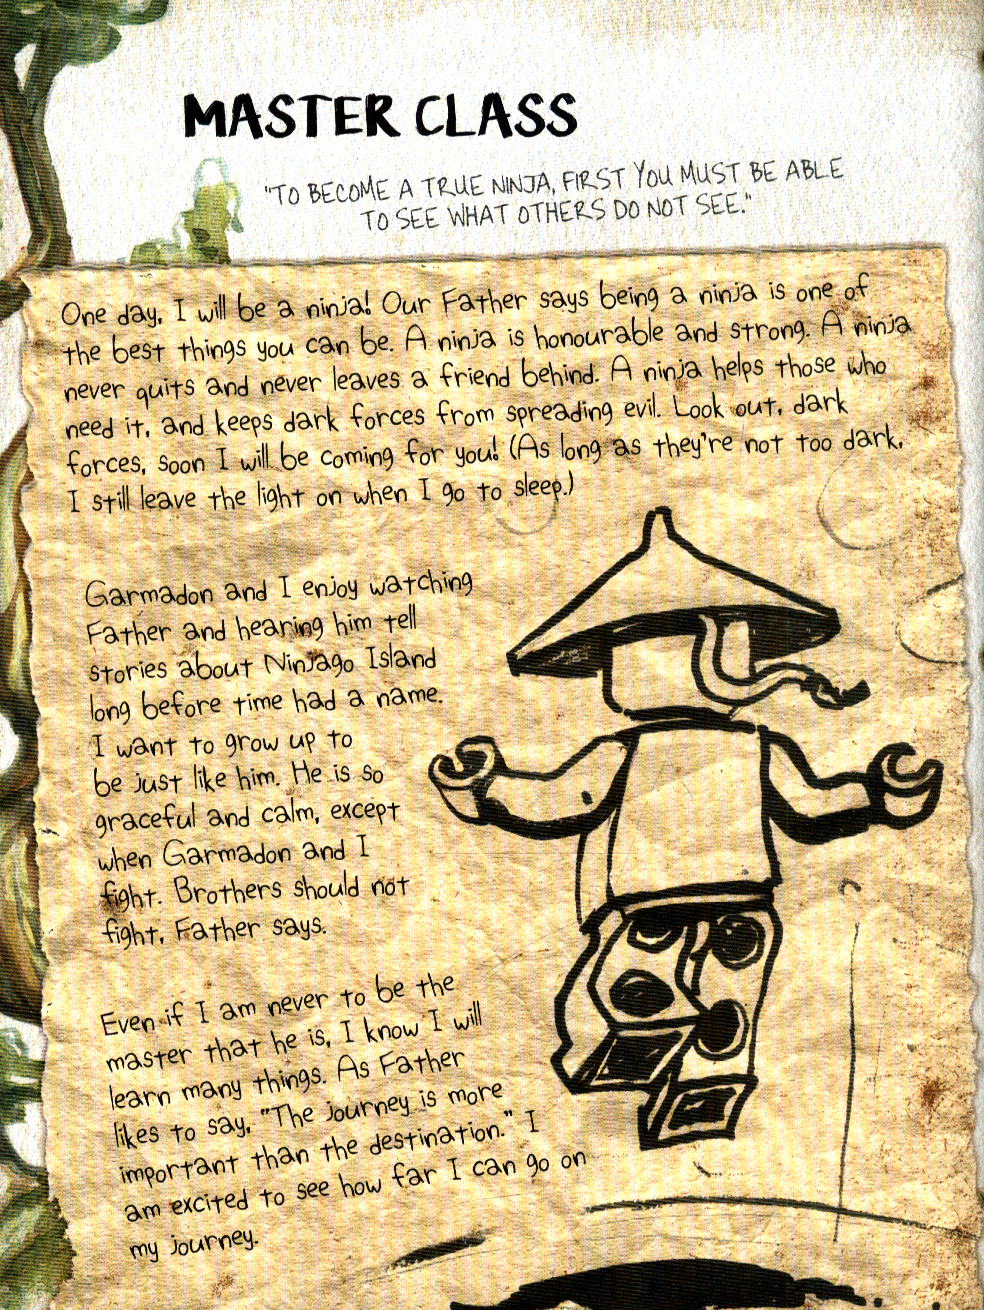 MASTER CLASS
"TO BECOME A TRUE NINJA, FIRST YOU MUST BE ABLE
TO SEE WHAT OTHERS DO NOT SEE."
One day, I will be a ninja! Our Father says being a ninja is one of
the best things you can be. A ninja is honourable and strong. A ninja
never quits and never leaves a friend behind. A ninja helps those who
need it, and keeps dark forces from spreading evil. Look out, dark
forces, soon I will be coming for you! (As long as they're not too dark.
I still leave the light on when I go to sleep.)
Garmadon and I enjoy watching
Father and hearing him tell
stories about Ninjago Island
long before time had a name.
I want to grow up to
be just like him. He is so
graceful and calm, except
when Garmadon and I
fight. Brothers should not
fight, Father says.
Even if I am never to be the
master that he is, I know I will
learn many things. As Father
likes to say, "The journey is more
important than the destination." I
am excited to see how far I can go on
my journey.